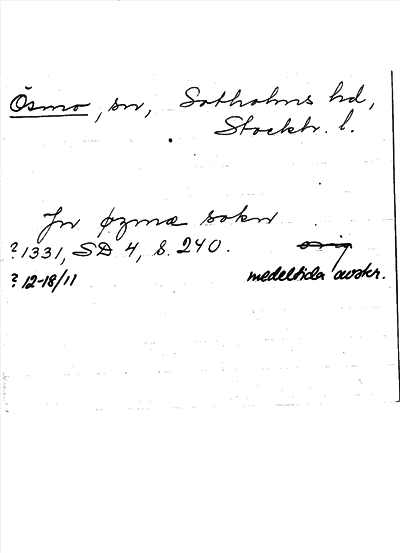 Ösmo, sn, Sotholms hd,
Stockh. l.
Jn øzmæ sokn
? 1331, SD 4, s. 240. orig
? 12-18/11 medeltida avskr.